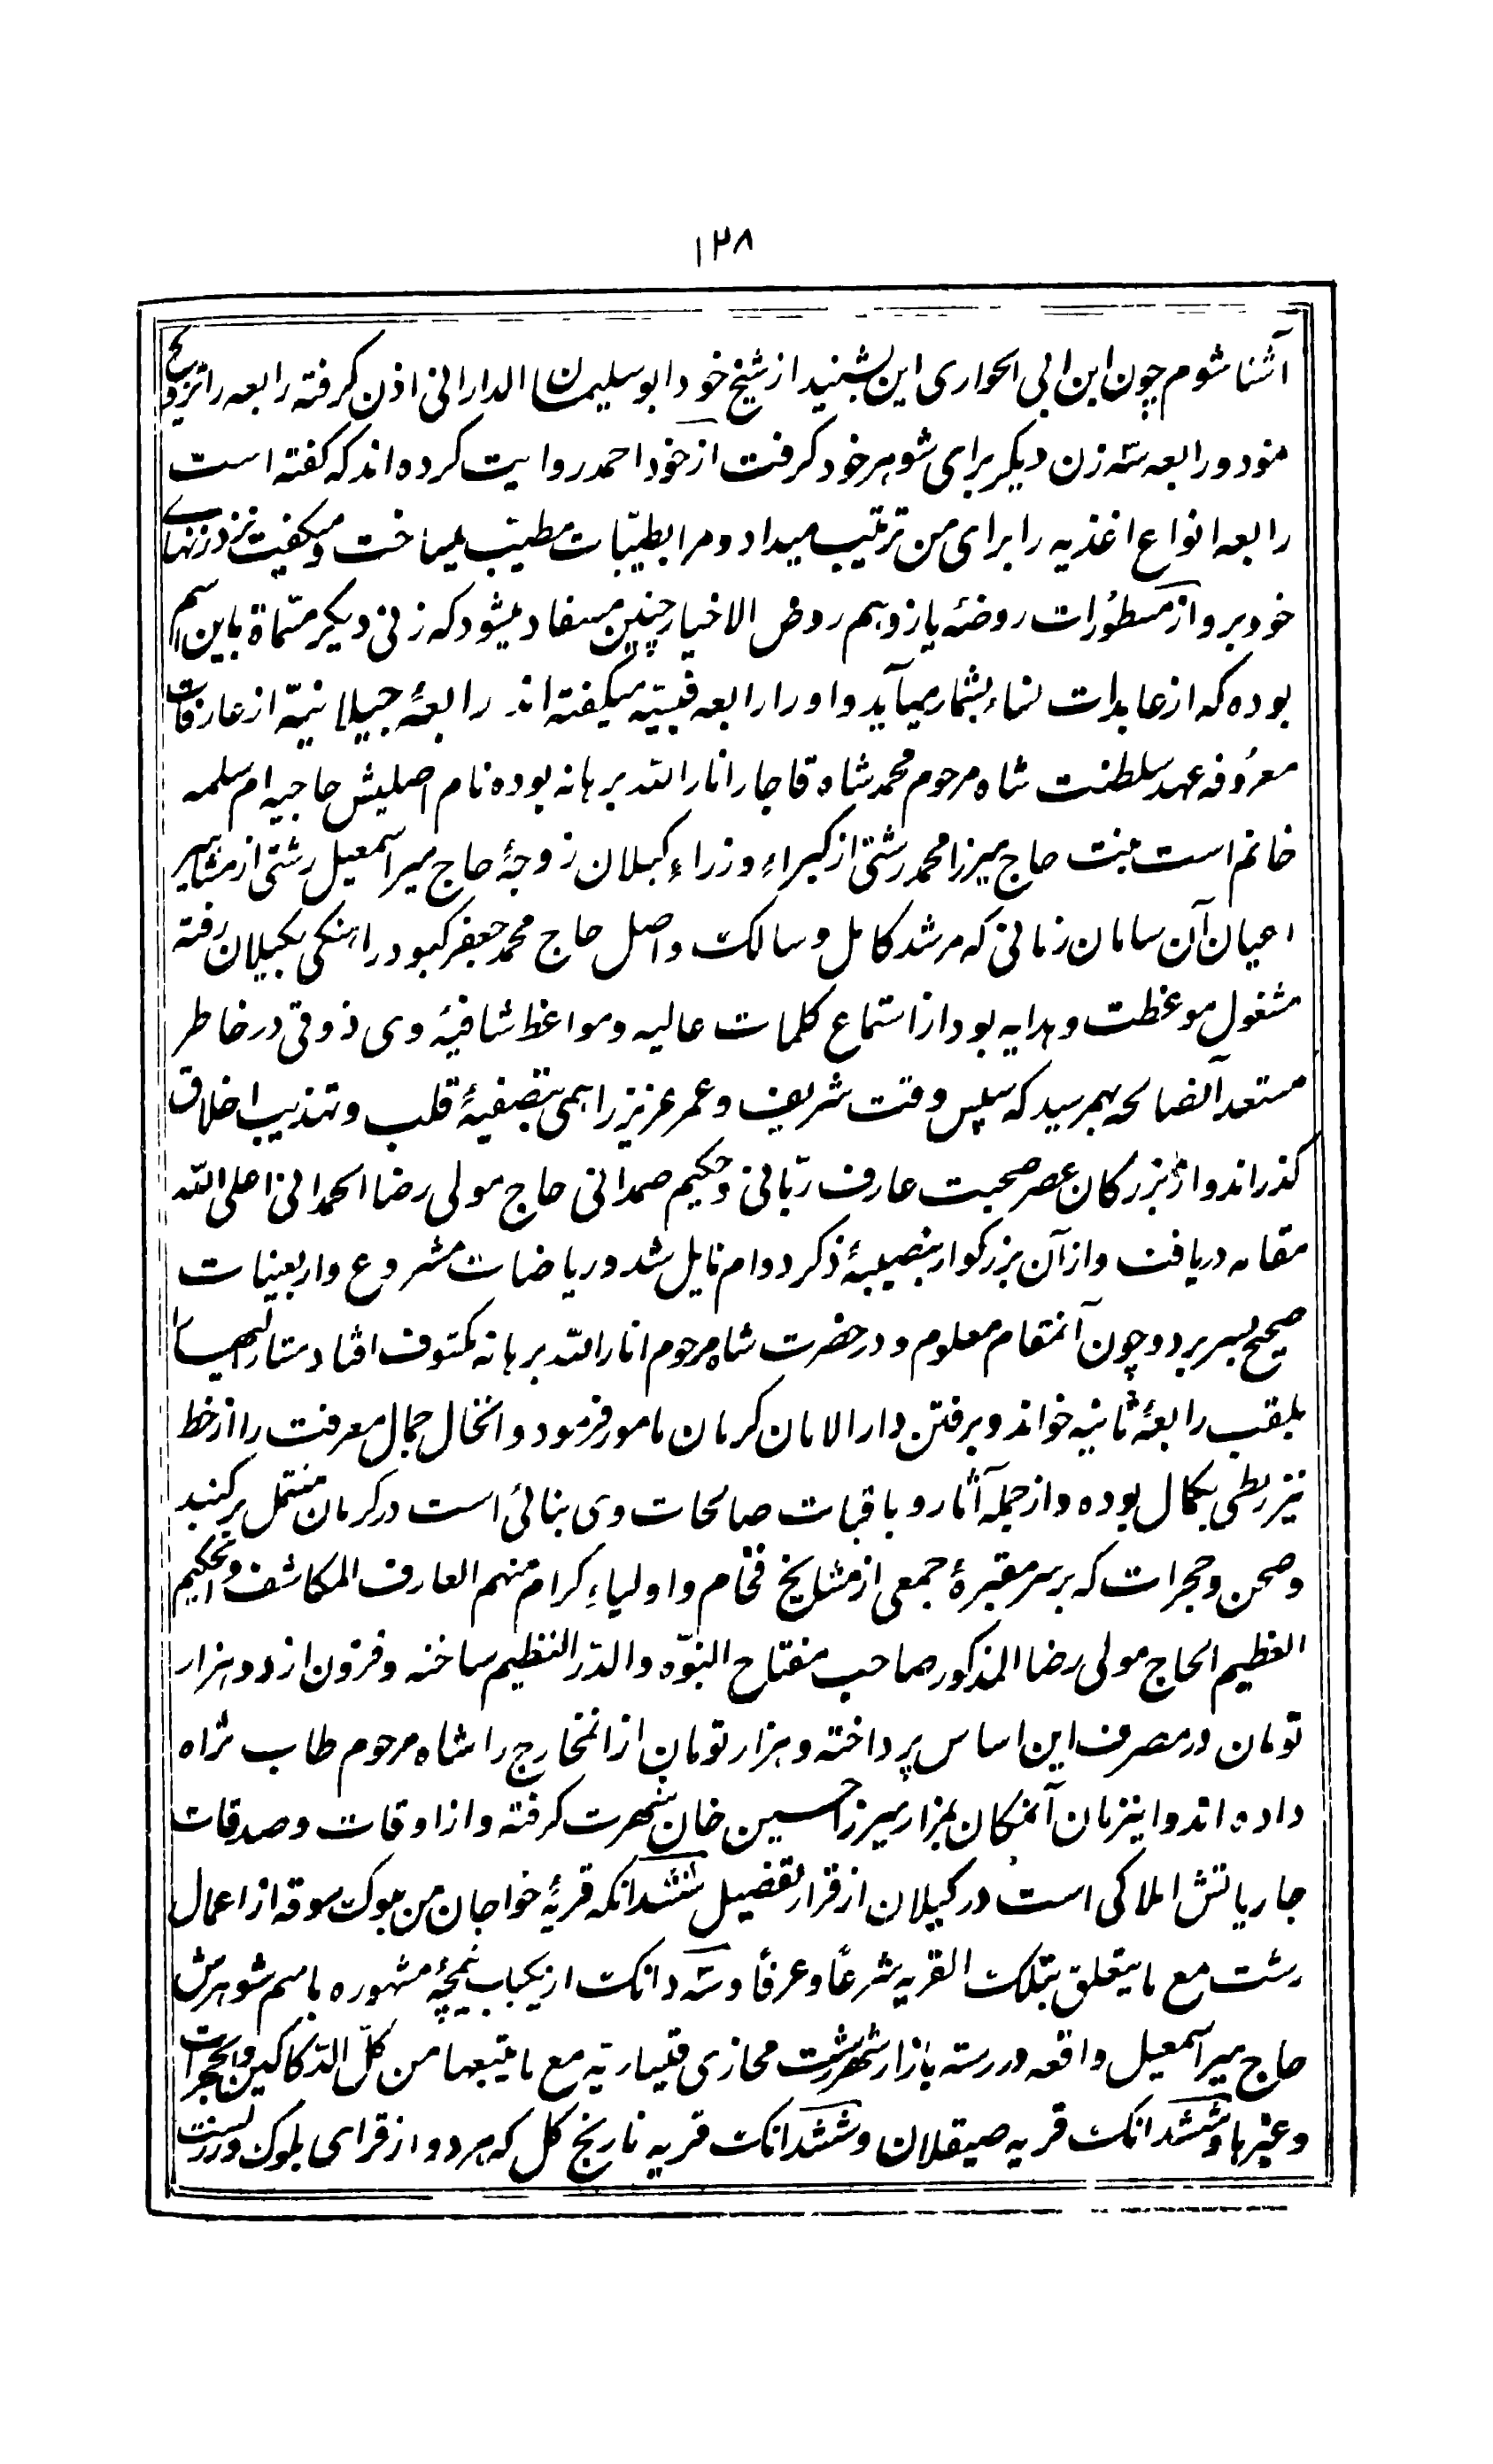 ۱۲۸
آشنا شوم چون ابن ابی الحواری این بشنید از شیخ خود ابوسلیمان الدارانی اذن کرفته رابعه را تزویج
نمود و رابعه سه زن دیکر برای شوهر خود کرفت از خود احمد روایت کرده‌اند که کفته است
رابعه انواع اغذیه را برای من ترتیب میداد و مرا بطیّبات مطیّب میساخت و میکفت نزد زنهای
خود برو از مسطورات روضهٔ یازدهم روض الاخیار چنین مستفاد میشود که زنی دیکر مسمّاة باین اسم
بوده که از عابدات نساء بشمار میآید و او را رابعه قیسیّه میکفته‌اند رابعهٔ جیلانیّه از عارفات
معروفه عهد سلطنت شاه مرحوم محمد شاه قاجار انار الله برهانه بوده نام اصلیش حاجیه ام سلمه
خانم است بنت حاج میرزا محمد رشتی از کبراء وزراء کیلان زوجهٔ حاج میر اسمعیل رشتی از مشاهیر
اعیان آن سامان زمانی که مرشد کامل و سالک واصل حاج محمد جعفر کبودراهنکی بکیلان رفته
مشغول موعظت و هدایه بود از استماع کلمات عالیه و مواعظ شافیهٔ وی ذوقی در خاطر
مستعد آنصالحه بهم رسید که سپس وقت شریف و عمر عزیز را همی بتصفیهٔ قلب و تهذیب اخلاق
کذراند و از بزرکان عصر صحبت عارف ربّانی و حکیم صمدانی حاج مولی رضا الهمدانی اعلی الله
مقامه دریافت و از آن بزرکوار بنصیبهٔ ذکر دوام نایل شد و ریاضات مشروع و اربعینات
صحیح بسر برد و چون آنمقام معلوم و در حضرت شاه مرحوم انار الله برهانه مکشوف افتاد مشار الیها را
بلقب رابعهٔ ثانیه خواند و برفتن دار الامان کرمان مامور فرمود و انخال جمال معرفت را از خط
نیز ربطی بکمال بوده و از جمله آثار و باقیات صالحات وی بنائی است در کرمان مشتمل بر کنبد
و صحن و حجرات که بر سر مقبرهٔ جمعی از مشایخ فخام و اولیاء کرام منهم العارف المکاشف و الحکیم
العظیم الحاج مولی رضا المذکور صاحب مفتاح النبوّه و الدّر النظیم ساخته و فزون از دو هزار
تومان در مصرف این اساس پرداخته و هزار تومان از انمخارج را شاه مرحوم طاب ثراه
داده‌اند و اینزمان آنمکان بمزار میرزا حسین خان شهرت کرفته و از اوقات و صدقات
جاریاتش املاکی است در کیلان از قرار تفضیل ششدانکه قریهٔ خواجان من بلوک موقه از اعمال
رشت مع ما یتعلق بتلک القریه شرعاً و عرفاً و سه دانک از یکباب تیمچهٔ مشهوره باسم شوهرش
حاج میر اسمعیل واقعه در رسته بازار شهر رشت محازی قیساریه مع ما یتبعها من کلّ الدّکاکین و الحجرات
و غیرها و ششدانک قریه صیقلان و ششدانک قریه نارنج کل که هر دو از قرای بلوک